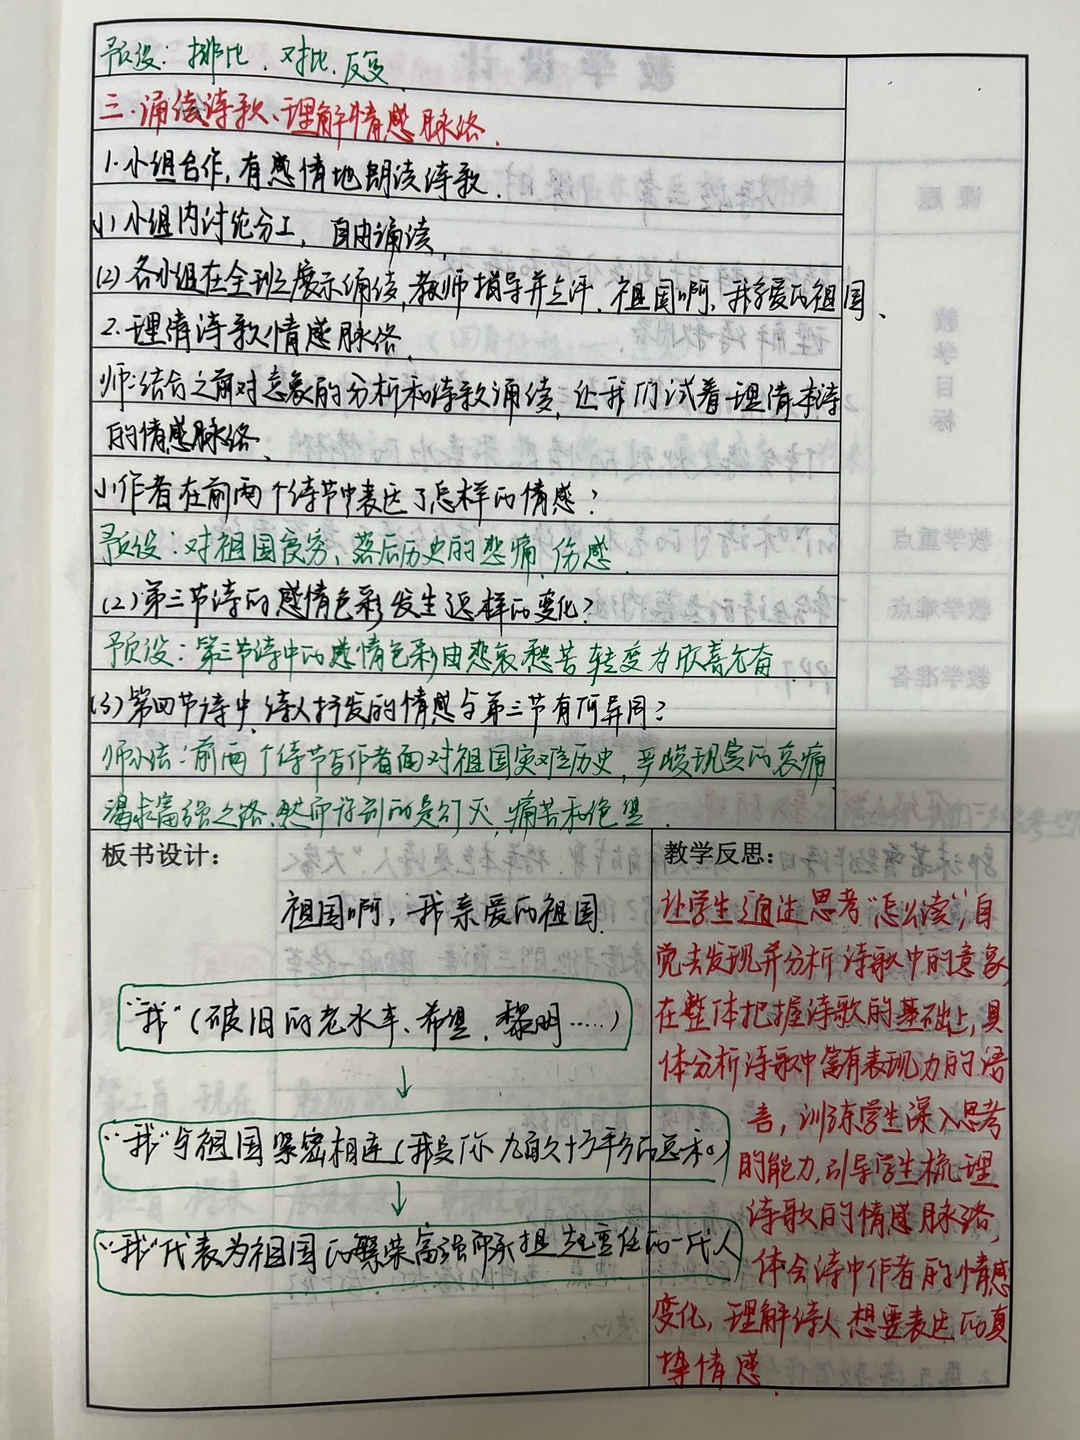 预设：排比、对比、反复
三.诵读诗歌、理解情感脉络.
1.小组合作,有感情地朗读诗歌.
(1)小组内讨论分工,自由诵读.
(2)各小组在全班展示诵读,教师指导并点评.祖国啊,我亲爱的祖国、
2.理清诗歌情感脉络.
师:结合之前对意象的分析和诗歌诵读,让我们试着理清本诗
的情感脉络.
(1)作者在前两个诗节中表达了怎样的情感?
预设:对祖国贫穷、落后历史的悲痛、伤感.
(2)第三节诗的感情色彩发生怎样的变化?
预设:第三节诗中的感情色彩由悲哀愁苦转变为欣喜亢奋.
(3)第四节诗中,诗人抒发的情感与第三节有何异同?
师小结:前两个诗节写作者面对祖国灾难历史,严峻现实的哀痛
渴求富强之路.然而得到的是幻灭,痛苦和绝望.
板书设计：
祖国啊,我亲爱的祖国
"我"(破旧的老水车、希望、黎明……)
↓
"我"与祖国紧密相连(我是你九百六十万平方的总和)
↓
"我"代表为祖国的繁荣富强而承担起重任的一代人
教学反思：
让学生通过思考"怎么读",自
觉去发现并分析诗歌中的意象,
在整体把握诗歌的基础上,具
体分析诗歌中富有表现力的语
言,训练学生深入思考
的能力.引导学生梳理
诗歌的情感脉络,
体会诗中作者的情感
变化,理解诗人想要表达的真
挚情感.